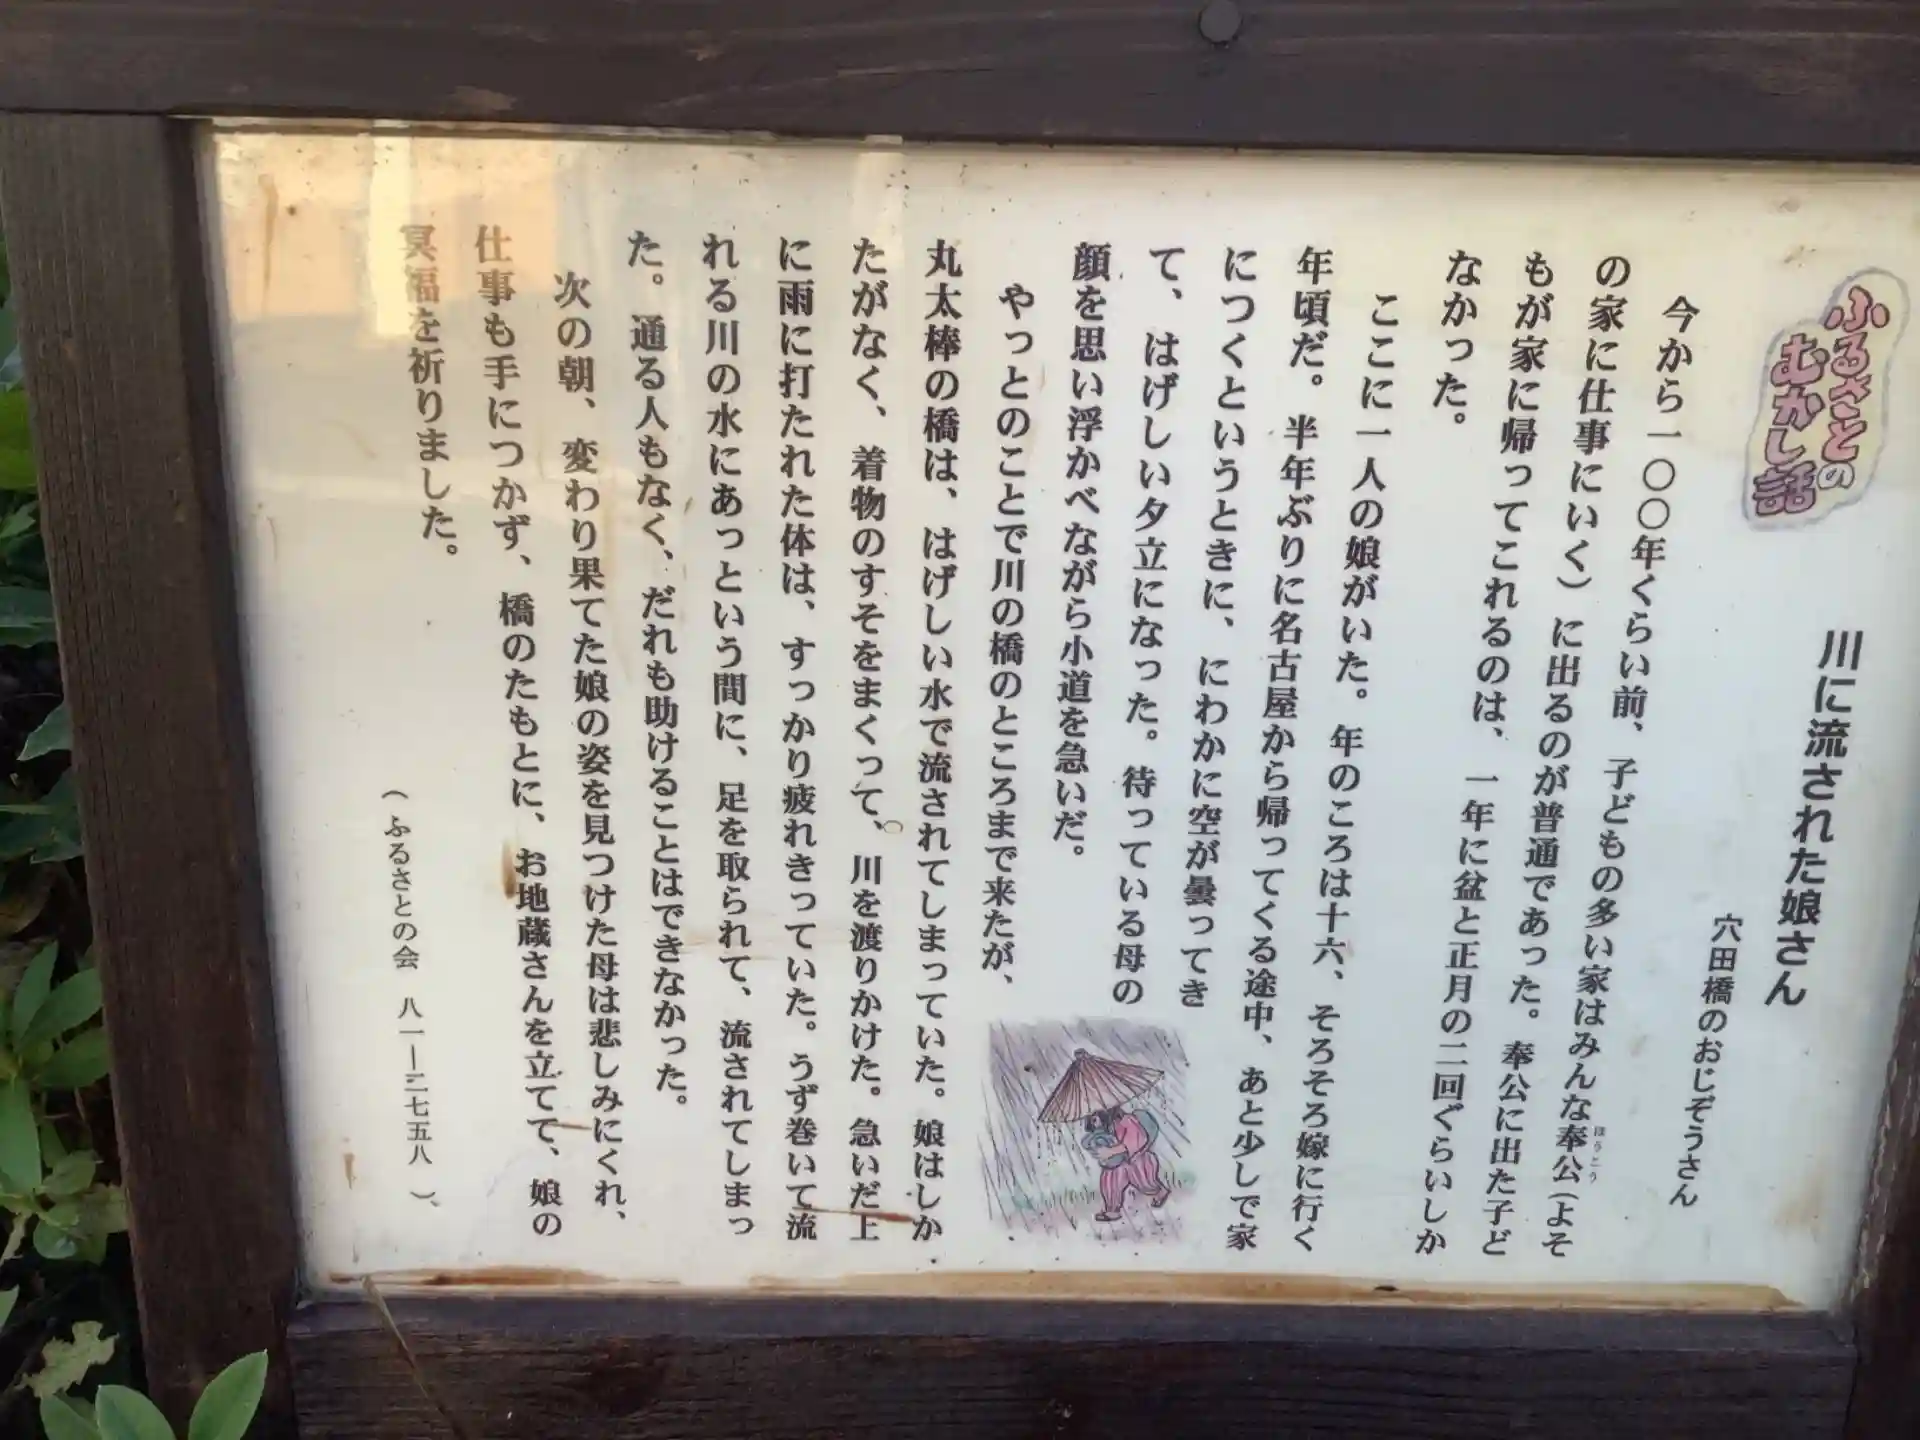 ふるさとの
むかし話
川に流された娘さん
穴田橋のおじぞうさん
今から一〇〇年くらい前、子どもの多い家はみんな奉公(よそ
ほうこう
の家に仕事にいく)に出るのが普通であった。奉公に出た子ど
もが家に帰ってこれるのは、一年に盆と正月の二回ぐらいしか
なかった。
ここに一人の娘がいた。年のころは十六、そろそろ嫁に行く
年頃だ。半年ぶりに名古屋から帰ってくる途中、あと少しで家
につくというときに、にわかに空が曇ってき
て、はげしい夕立になった。待っている母の
顔を思い浮かべながら小道を急いだ。
やっとのことで川の橋のところまで来たが、
丸太棒の橋は、はげしい水で流されてしまっていた。娘はしか
たがなく、着物のすそをまくって、川を渡りかけた。急いだ上
に雨に打たれた体は、すっかり疲れきっていた。うず巻いて流
れる川の水にあっという間に、足を取られて、流されてしまっ
た。通る人もなく、だれも助けることはできなかった。
次の朝、変わり果てた娘の姿を見つけた母は悲しみにくれ、
仕事も手につかず、橋のたもとに、お地蔵さんを立てて、娘の
冥福を祈りました。
(ふるさとの会 八一―二七五八)